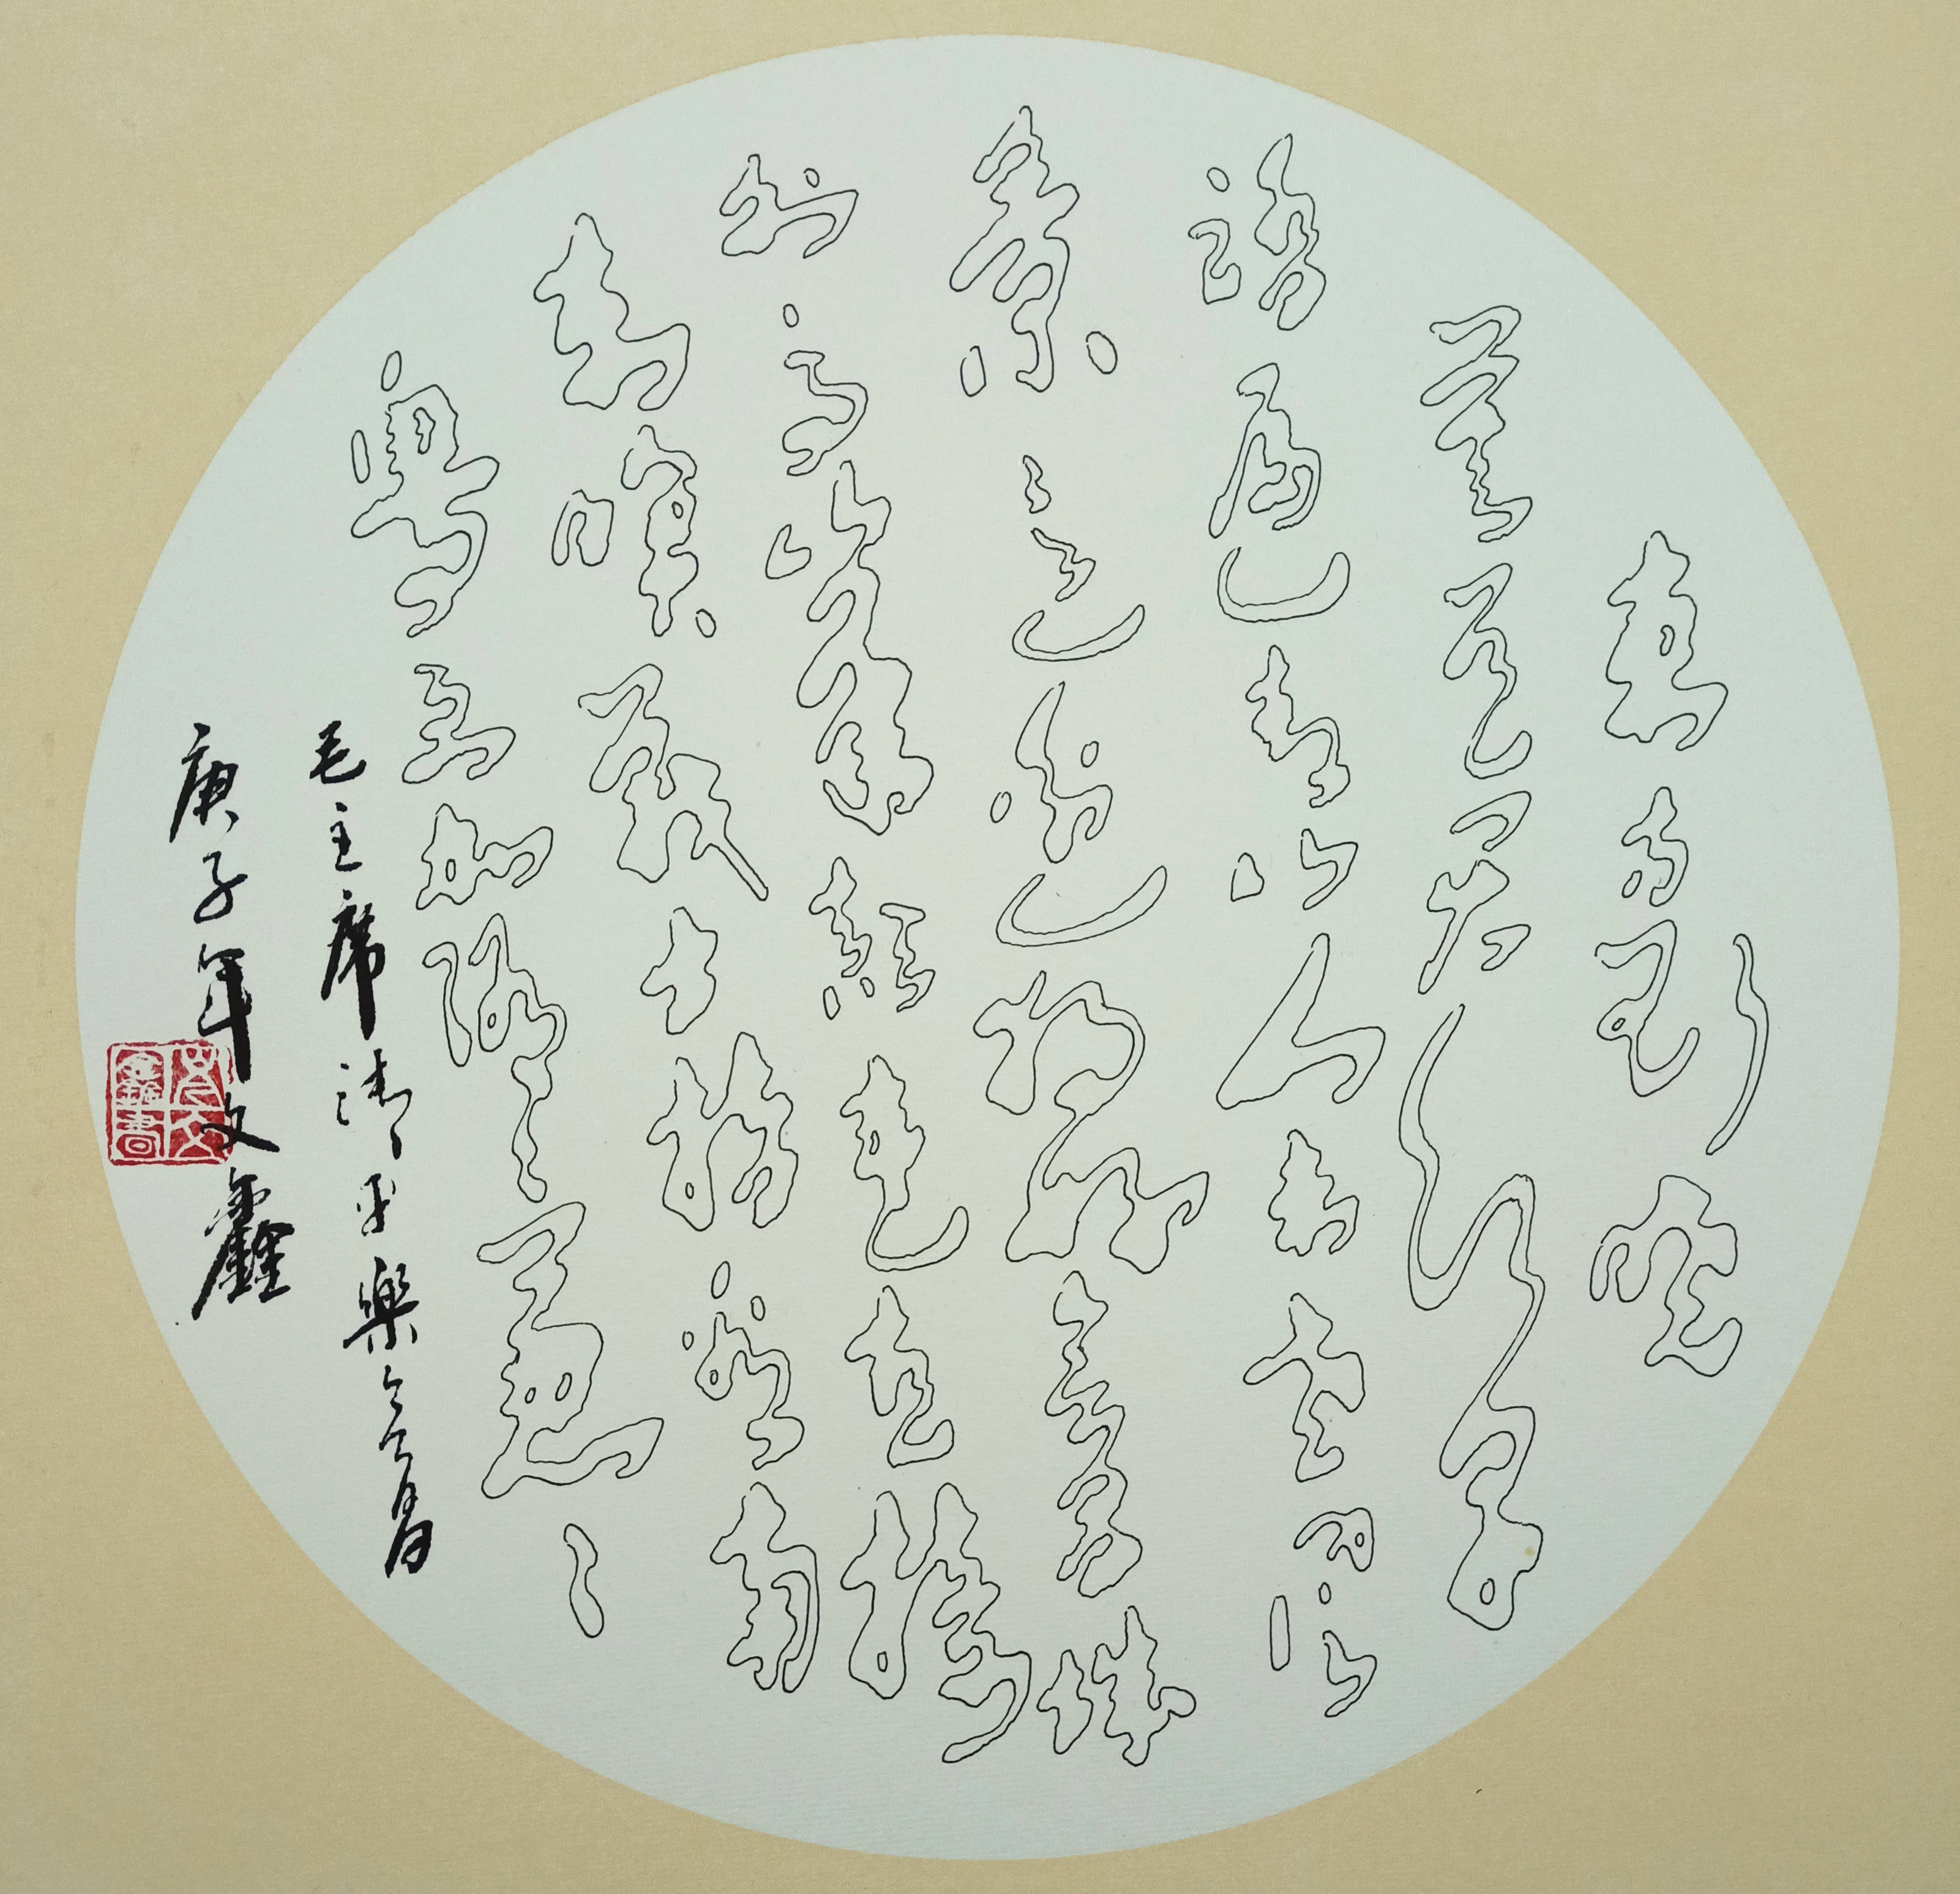 東方欲曉
莫道君行早
踏遍青山人未老風
景這邊獨好會昌城
外高峰顛連直接
東溟戰士指看南
粵更加鬱々葱々
毛主席清平樂會昌
庚子年文